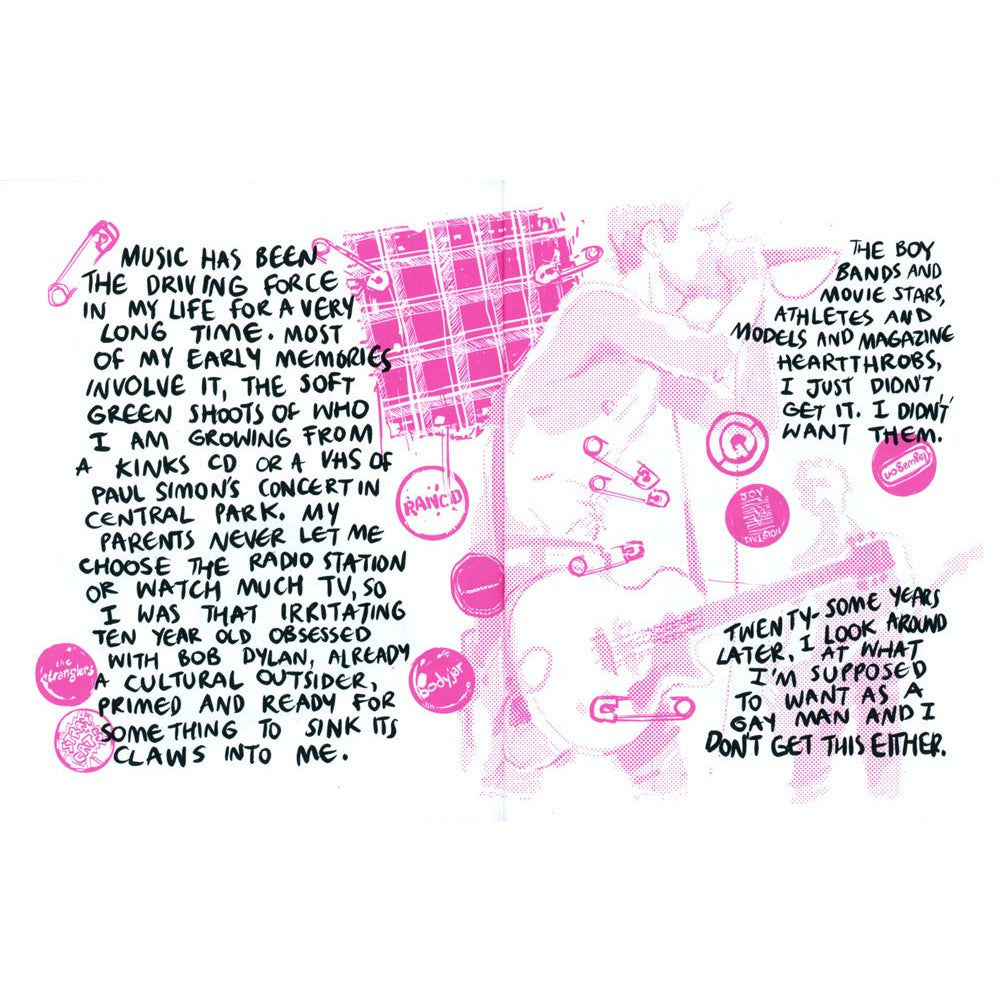 MUSIC HAS BEEN
THE DRIVING FORCE
IN MY LIFE FOR A VERY
LONG TIME. MOST
OF MY EARLY MEMORIES
INVOLVE IT, THE SOFT
GREEN SHOOTS OF WHO
I AM GROWING FROM
A KINKS CD OR A VHS OF
PAUL SIMON'S CONCERT IN
CENTRAL PARK. MY
PARENTS NEVER LET ME
CHOOSE THE RADIO STATION
OR WATCH MUCH TV, SO
I WAS THAT IRRITATING
TEN YEAR OLD OBSESSED
WITH BOB DYLAN, ALREADY
A CULTURAL OUTSIDER,
PRIMED AND READY FOR
SOMETHING TO SINK ITS
CLAWS INTO ME.
RANCID
the
stranglers
STRAY
CATS
bodyjar
THE BOY
BANDS AND
MOVIE STARS,
ATHLETES AND
MODELS AND MAGAZINE
HEARTTHROBS,
I JUST DIDN'T
GET IT. I DIDN'T
WANT THEM.
JOY
DIVISION
TWENTY-SOME YEARS
LATER, I LOOK AROUND
AT WHAT
I'M SUPPOSED
TO WANT AS A
GAY MAN AND I
DON'T GET THIS EITHER.